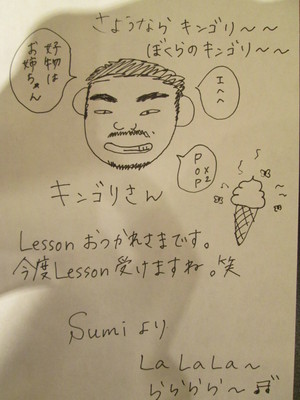 さようなら キンゴリ〜〜
ぼくらの キンゴリ〜〜
好物は
お姉ちゃん
エヘヘ
キンゴリさん
Lesson おつかれさまです。
今度Lesson 受けますね。笑
Sumi より
La La La〜
らららら〜